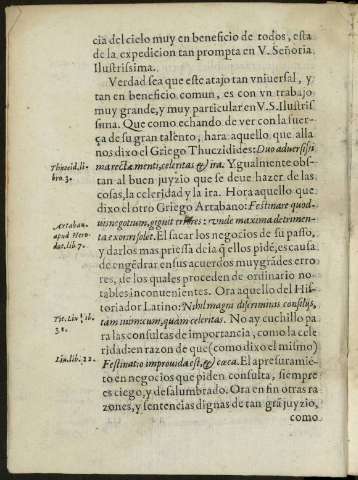 cia del cielo muy en beneficio de todos, esta
de la expedicion tan prompta en V. Señoria
Ilustrissima.
Verdad sea que este atajo tan vniuersal, y
tan en beneficio comun, es con vn trabajo
muy grande, y muy particular en V.S. Ilustris
sima. Que como echando de ver con la fuer-
ça de su gran talento, hara aquello que alla
nos dixo el Griego Thuczidides: Duo aduersissi
Thuczid. li-
bro 3.
ma recta menti, celeritas & ira. Ygualmente obs-
tan al buen juyzio que se deue hazer de las
cosas, la celeridad y la ira. Hora aquello que
dixo el otro Griego Artabano: Festinare quod-
Artaban.
apud Hero
dot. lib. 7.
uis negotium, gignit errores: vnde maxima detrimen-
ta exoriri solet. El sacar los negocios de su passo,
y darlos mas priessa de la que ellos pidē, es causa
de engēdrar en sus acuerdos muy grādes erro
res, de los quales proceden de ordinario no-
tables inconuenientes. Ora aquello del His-
toriador Latino: Nihil magni discriminis consilijs,
Tit. Liu. lib.
31.
tam inimicum, quam celeritas. No ay cuchillo pa
ra las consultas de importancia, como la cele
ridad: en razon de que (como dixo el mismo)
Liu. lib. 22.
Festinatio improuida est, & caeca. El apresuramie-
to en negocios que piden consulta, siempre
es ciego, y desalumbrado. Ora en fin otras ra
zones, y sentencias dignas de tan grā juyzio,
como